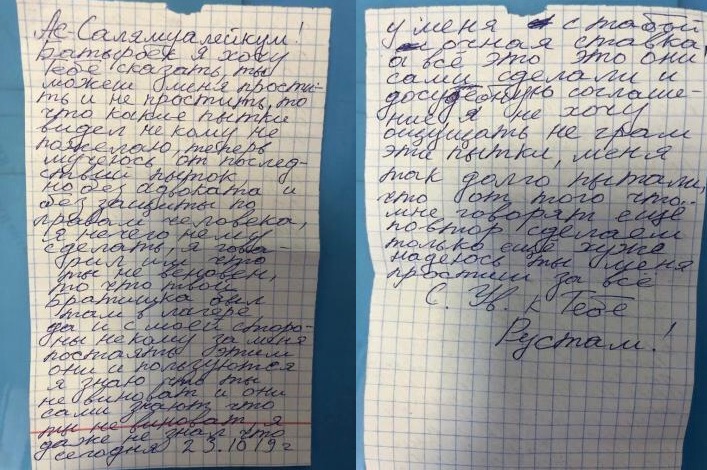 Ас Салямуалейкум!
Батырбек я хочу
тебе сказать, ты
можеш меня прости-
ть и не простить, то
что какие пытки
видел не кому не
пожелаю, теперь
мучеюсь от послед-
ствий пыток
но без адвоката и
без защиты по
правам человека,
я нечего не мог
сделать, я гова-
рил им что
ты не веновен,
то что твой
братишка был
там в лагере
да и с моей сторо-
ны некому за меня
постаять этим
они и пользуются
я знаю что ты
не виноват и они
сами знают что
ты не виноват я
даже не знал что
сегодня 23.10 19 г
у меня с табой
очная ставка,
а всё это это они
сами сделали и
досудебную соглаше-
ние я не хочу
ощущать не грам
эти пытки, меня
так долго пытали,
что от того что
мне говорят ещё
повтор сделаем
только ещё хуже
надеюсь ты меня
простиш за всё
С. Ув. к Тебе
Рустам.!